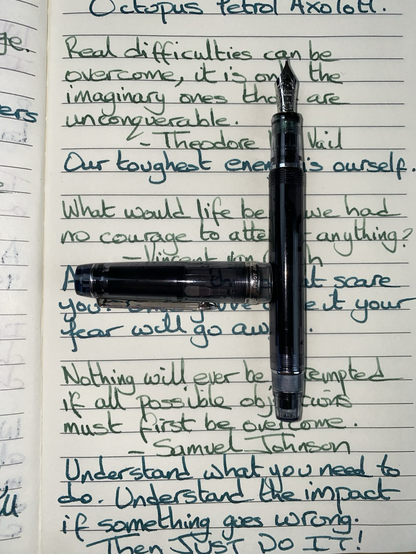 ge.
ers
Octopus Petrol Axolotl.
Real difficulties can be
overcome, it is only the
imaginary ones that are
unconquerable.
- Theodore Vail
Our toughest enemy is ourself.
What would life be we had
no courage to attempt anything?
- Vincent van Gogh
scare
you. it your
fear will go away.
Nothing will ever be attempted
if all possible objections
must first be overcome.
- Samuel Johnson
Understand what you need to
do. Understand the impact
if something goes wrong.
Then JUST DO IT!